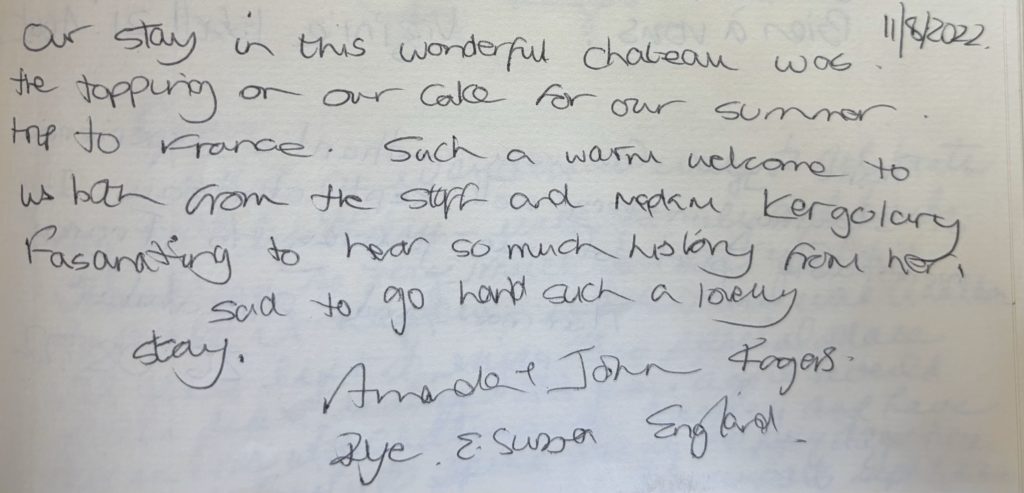 11/8/2022.
Our stay in this wonderful chateau was
the topping on our cake for our summer
trip to France. Such a warm welcome to
us both from the staff and Kergolary
Fasanating to hear so much history from her,
sad to go such a lovely
stay.
Amanda + John Rogers.
Rye. E. Sussex England.